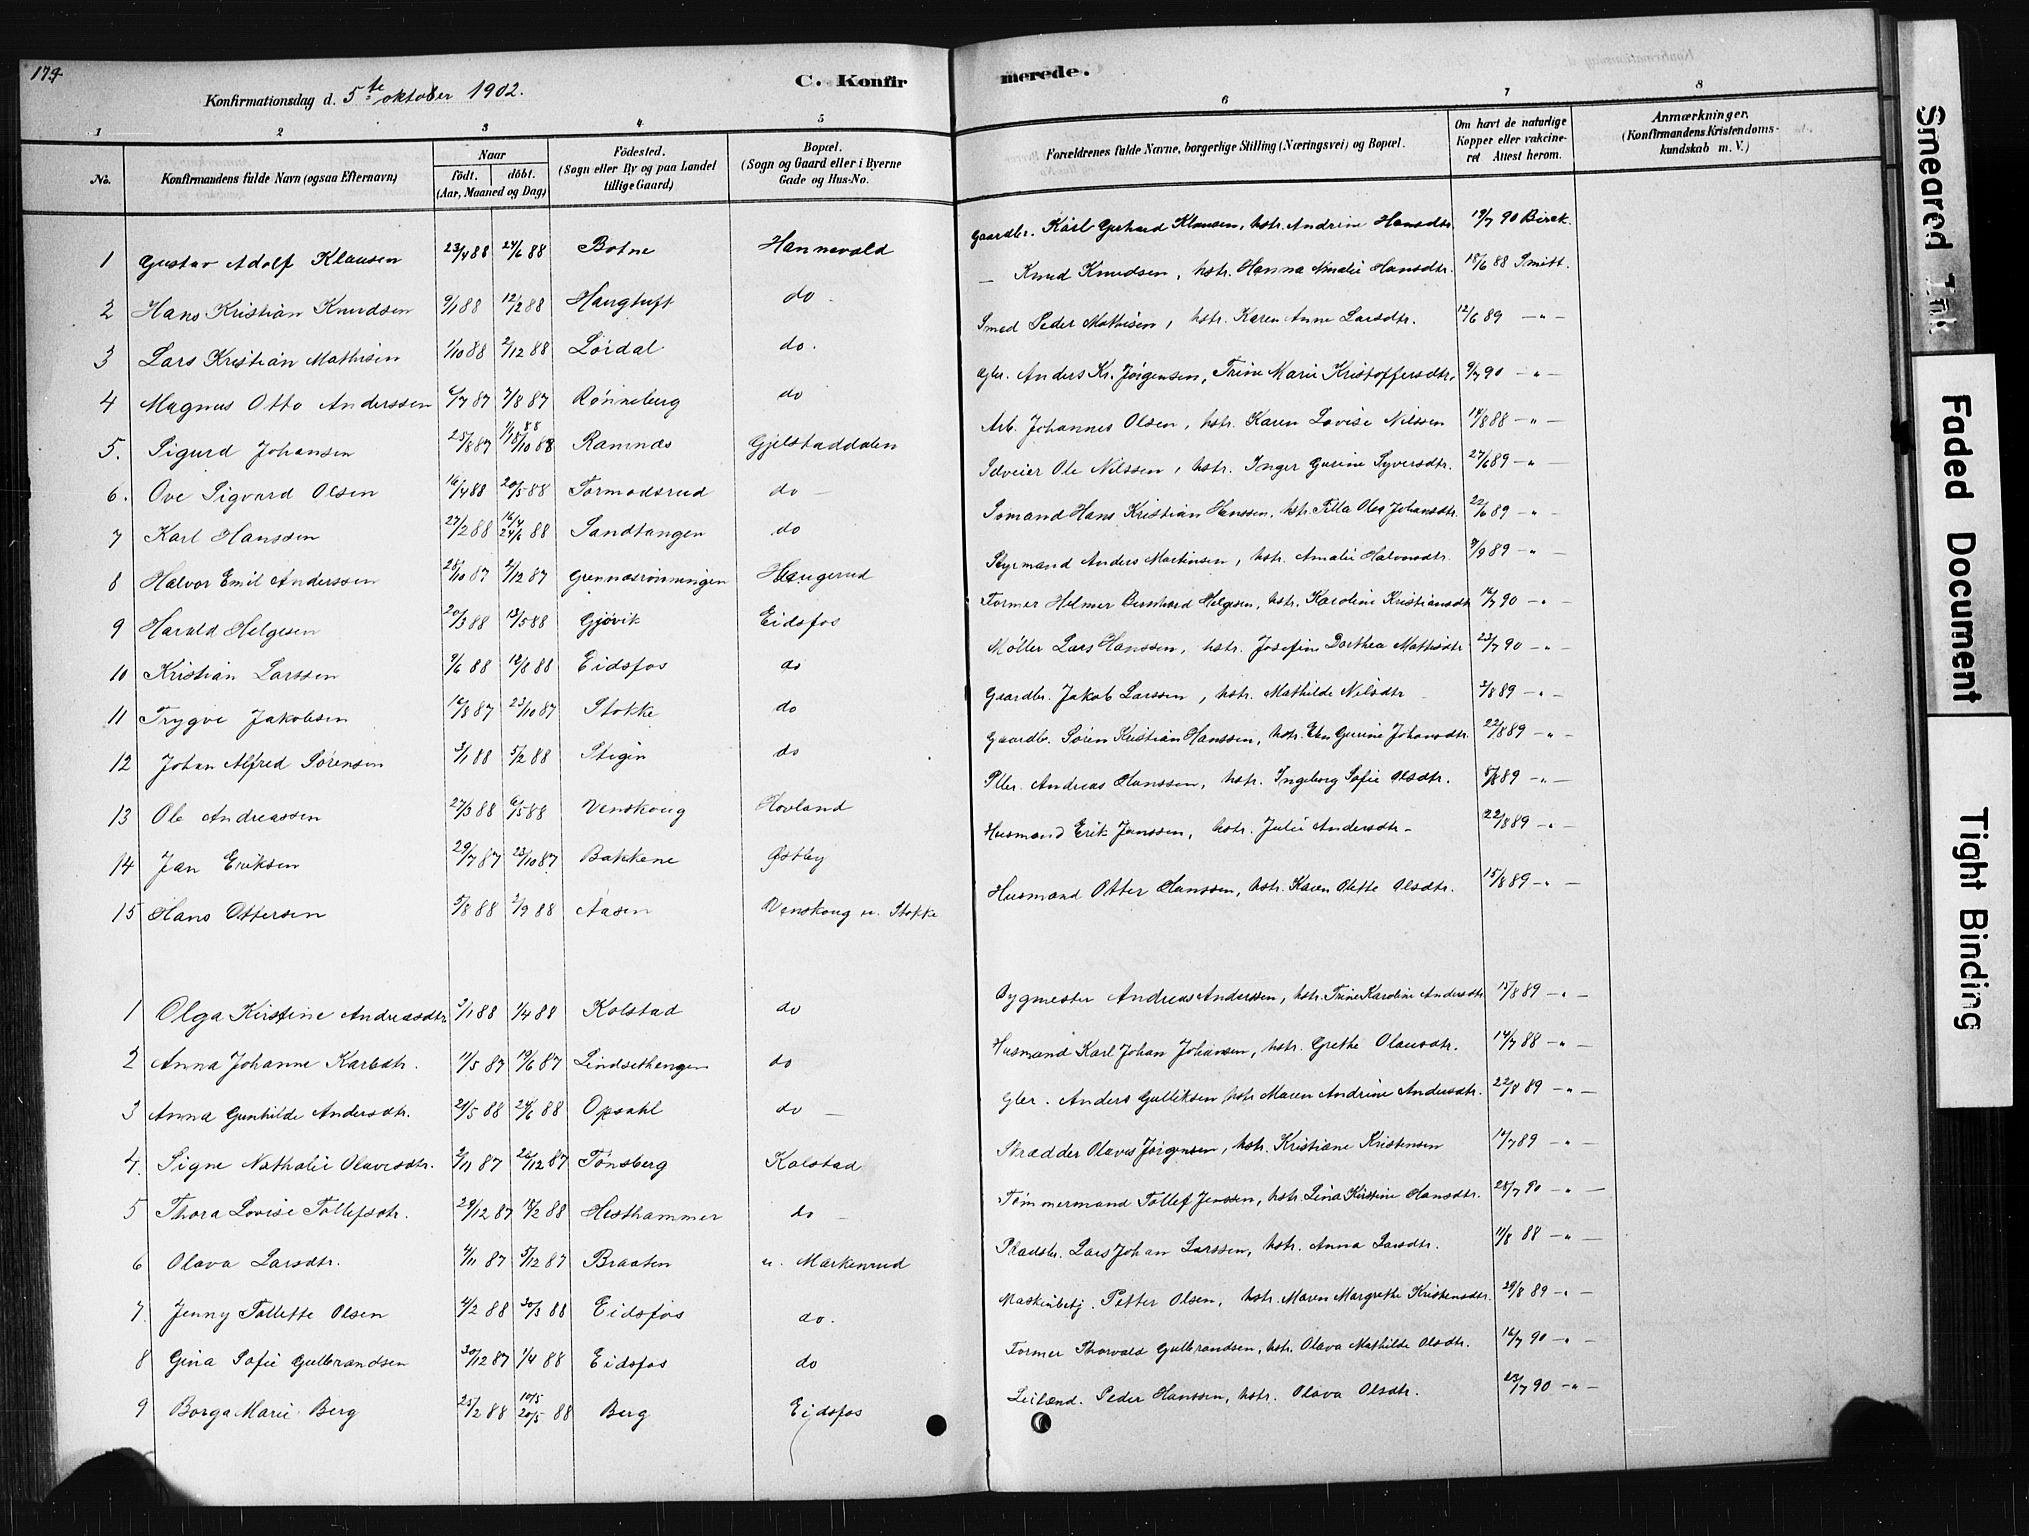 174
Konfirmationsdag d. 5te oktober 1902.
C. Konfirmerede.
1 2 3 4 5 6 7 8
No. Konfirmandens fulde Navn (ogsaa Efternavn) Naar födt. döbt. (Aar, Maaned og Dag) Födested. (Sogn eller By og paa Landet tillige Gaard) Bopæl. (Sogn og Gaard eller i Byerne Gade og Hus-No. Forældrenes fulde Navne, borgerlige Stilling (Næringsvei) og Bopæl. Om havt de naturlige Kopper eller vakcineret Attest herom. Anmærkninger. (Konfirmandens Kristendomskundskab m. V.)
1 Gustav Adolf Klausen 23/4 88 24/6 88 Botne Hannevold Gaardbr. Karl Gerhard Klausen, hstr. Andrine Hansdtr. 19/7 90 Birck.
2 Hans Kristian Knudsen 9/1 88 12/2 88 Haugtuft do. — Knud Knudsen, hstr. Hanna Amalie Hansdtr. 18/6 88 Smitt.
3 Lars Kristian Mathisen 1/10 88 2/12 88 Löidal do. Smed Peder Mathisen, hstr. Karen Anne Larsdtr. 12/6 89 — " —
4 Magnus Otto Anderssen 6/7 87 7/8 87 Rønneberg do Gbr. Anders Kr. Jørgensen, Trine Marie Kristoffersdtr. 9/7 90 — " —
5. Sigurd Johansen 25/8 87 Ramnæs Gjelstaddalen Arb. Johannes Olsen, hstr. Karen Lovise Nilssen 14/8 88 — " —
6. Ove Sigvard Olsen 16/4 88 20/5 88 Tormodsrud do — Selveier Ole Nilssen, hstr. Inger Gurine Syversdtr. 27/6 89 — " —
7 Karl Hanssen 27/2 88 16/4 24/6 88 Sandtangen do Sømand Hans Kristian Hanssen, hstr. Johansdtr. 22/6 89 — " —
8 Halvor Emil Anderssen 28/10 87 4/12 87 Grennæsrönningen Haugerud Styrmand Anders Martinsen, hstr. Amalie Halvorsdtr. 9/9 89 — " —
9 Harald Helgesen 20/3 88 13/5 88 Gjövik Eidsfos Former Helmer Bernhard Helgesen, hstr. Karoline Kristiansdtr 16/7 90 — " —
10 Kristian Larssen 9/6 88 12/8 88 Eidsfos do Møller Lars Hanssen, hstr. Josefine Dorthea Mathisdtr 23/7 90 — " —
11 Trygve Jakobsen 16/8 87 23/10 87 Stokke do Gaardbr. Jakob Larssen, hstr. Mathilde Nilsdtr 2/8 89 — " —
12 Johan Alfred Sørensen 3/1 88 5/2 88 Stigen do Gaardbr. Søren Kristian Hanssen, hstr. Gurine Johansdtr. 22/8 89 — " —
13 Ole Andreassen 27/3 88 6/5 88 Venskoug Hovland Andreas Hanssen, hstr. Ingeborg Sofie Olsdtr. 5/8 89 — " —
14 Jan Eriksen 29/7 87 23/10 87 Bakkene Østby Husmand Erik Janssen, hstr. Julie Andersdtr. 22/8 89 — " —
15 Hans Ottersen 5/8 88 2/9 88 Aasen Venskoug u. Stokke Husmand Otter Hanssen, hstr. Karen Olette Olsdtr. 15/8 89 — " —
1 Olga Kirstine Andreasdtr 3/1 88 1/4 88 Kolstad do Bygmester Andreas Anderssen, hstr. Trine Karoline Andersdtr 15/8 89 — " —
2 Anna Johanne Karlsdtr. 11/5 87 19/6 87 Lindsethengen do Husmand Karl Johan Johansen, hstr. Grethe Olausdtr. 14/7 88 — " —
3 Anna Gunhilde Andersdtr. 21/5 88 24/6 88 Opsahl do — Gbr. Anders Gulliksen hstr Maren Andrine Andersdtr. 22/8 89 — " —
4. Signe Nathalie Olavesdtr. 2/11 87 26/12 87 Tønsberg Kolstad Skrædder Olaves Jörgensen, hstr. Kristiane Kristensen 12/7 89 — " —
5 Thora Lovise Tollefsdtr. 29/12 87 18/2 88 Hesthammer do — Tømmermand Tollef Jenssen, hstr. Lina Kirstine Hansdtr. 28/7 90 — " —
6 Olava Larsdtr. 4/11 87 5/12 87 Braaten u. Markenrud Pladsbr. Lars Johan Larssen, hstr. Anna Larsdtr. 11/8 88 — " —
7. Jenny Tollette Olsen 4/2 88 30/3 88 Eidsfos do. Maskinbetj. Petter Olsen, hstr. Maren Margrethe Kristensdtr. 29/8 89 — " —
8 Gina Sofie Gulbrandsen 30/12 87 1/4 88 Eidsfos do Former Thorvald Gulbrandsen, hstr. Olava Mathilde Olsdtr. 16/7 90 — " —
9 Borga Marie Berg 25/2 88 10/5 20/5 88 Berg Eidsfos Leilænd. Peder Hanssen, hstr. Olava Olsdtr. 23/7 90 — " —
Smeared Ink
Faded Document
Tight Binding